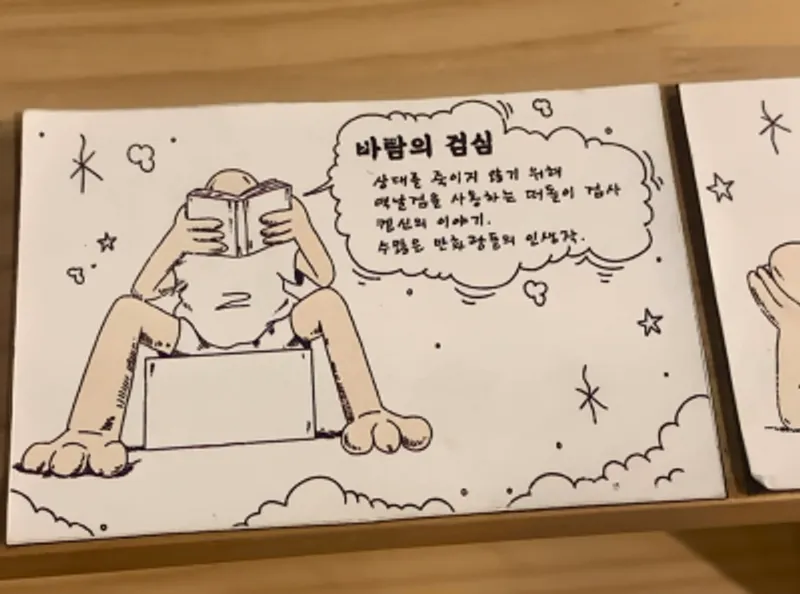 바람의 검심
상대를 죽이지 않기 위해
역날검을 사용하는 떠돌이 검사
켄신의 이야기.
수많은 만화광들의 인생작.